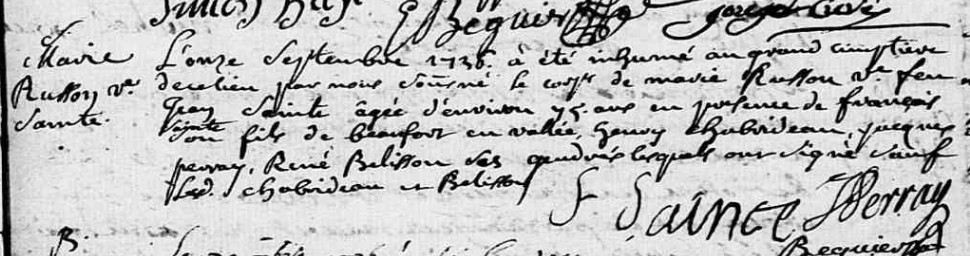 Bequier
Marie
Russon ve
Sainte.
L'onze Septembre 1736. à été inhumé au grand cimptière
de ce lieu par nous soussné le corps de marie Russon ve feu
Jean Sainte âgée d'environ 75 ans en présence de françois
Sainte
son fils de beaufort en vallée, henry chabrideau, jacques
perray, René Belisson ses gendres lesquels ont signé sauf
lesd. chabrideau et Belisson
F Sainte JPerray
Bequier
B.